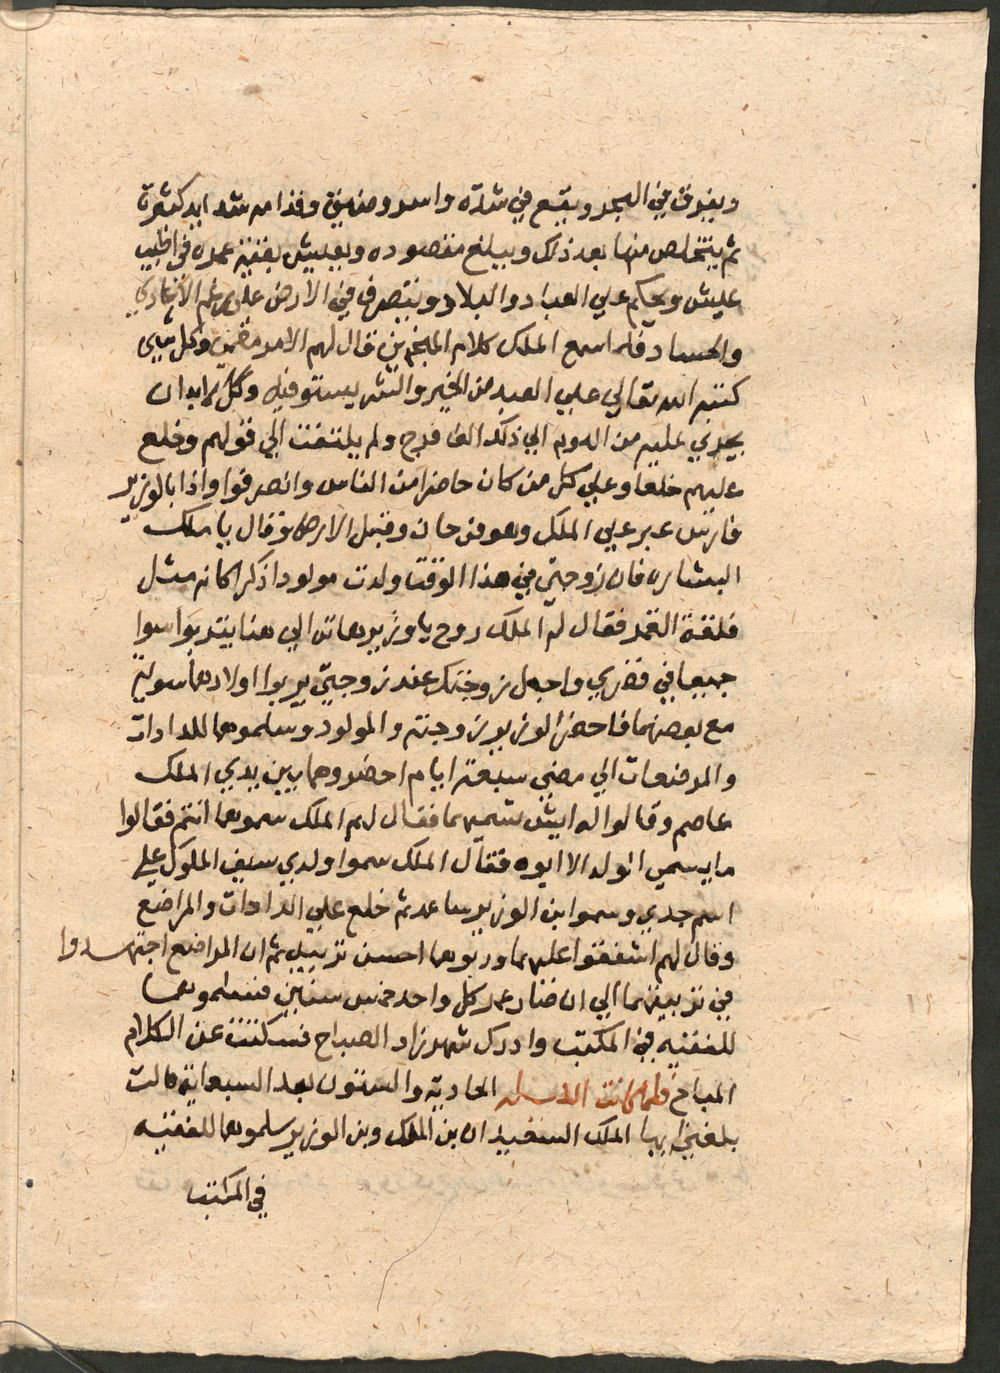 ويغرق في البحر ويقع في شدة واسر وضيق وقدامه شدايد كثيرة
ثم يتخلص منها بعد ذلك ويبلغ مقصوده ويعيش بقية عمره في اطيب
عيش ويحكم علي العباد والبلاد ويتصرف في الارض علي رغم الاعادي
والحساد فلما سمع الملك كلام المنجمين قال لهم الامر وكل شي
كتبه الله تعالي علي العبد من الخير والشر يستوفيه وكل لابد ان
يجري عليه من اليوم الي ذلك الف فرج ولم يلتفت الي قولهم وخلع
عليهم خلعا وعلي كل من كان حاضرا من الناس وانصرفوا واذا بالوزير
فارس عبر علي الملك وهو فرحان وقبل الارض وقال يا ملك
البشاره فان زوجتي في هذا الوقت ولدت مولودا ذكرا كانه مثل
فلقة القمر فقال له الملك روح يا وزير هاته الي هنا يتربوا سوا
جميعا في قصري واجعل زوجتك عند زوجتي يربوا اولادهما سوية
مع بعضهما فاحضر الوزير زوجته والمولود وسلموهما للدادات
والمرضعات الي مضي سبعة ايام احضروهما بين يدي الملك
عاصم وقالوا له ايش تسميهما فقال لهم الملك سموهما انتم فقالوا
ما يسمي الولد الا ابوه فقال الملك سموا ولدي سيف الملوك علي
اسم جدي وسموا ابن الوزير ساعد ثم خلع علي الدادات والمراضع
وقال لهم اشفقوا عليهما وربوهما احسن تربية ثم ان المراضع اجتهدوا
في تربيتهما الي ان صار عمر كل واحد خمس سنين فسلموهما
للفقيه في المكتب وادرك شهرزاد الصباح فسكتت عن الكلام
المباح فلما كانت الليلة الحادية والستون بعد السبعماية قالت
بلغني ايها الملك السعيد ان بن الملك وبن الوزير سلموهما للفقيه
في المكتب